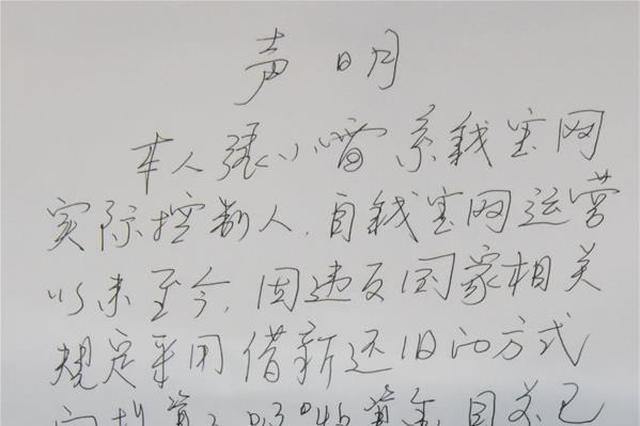 声明
本人張小雷系钱宝网
实际控制人,自钱宝网运营
以来至今,因违反国家相关
规定采用借新还旧的方式
资金,目前已